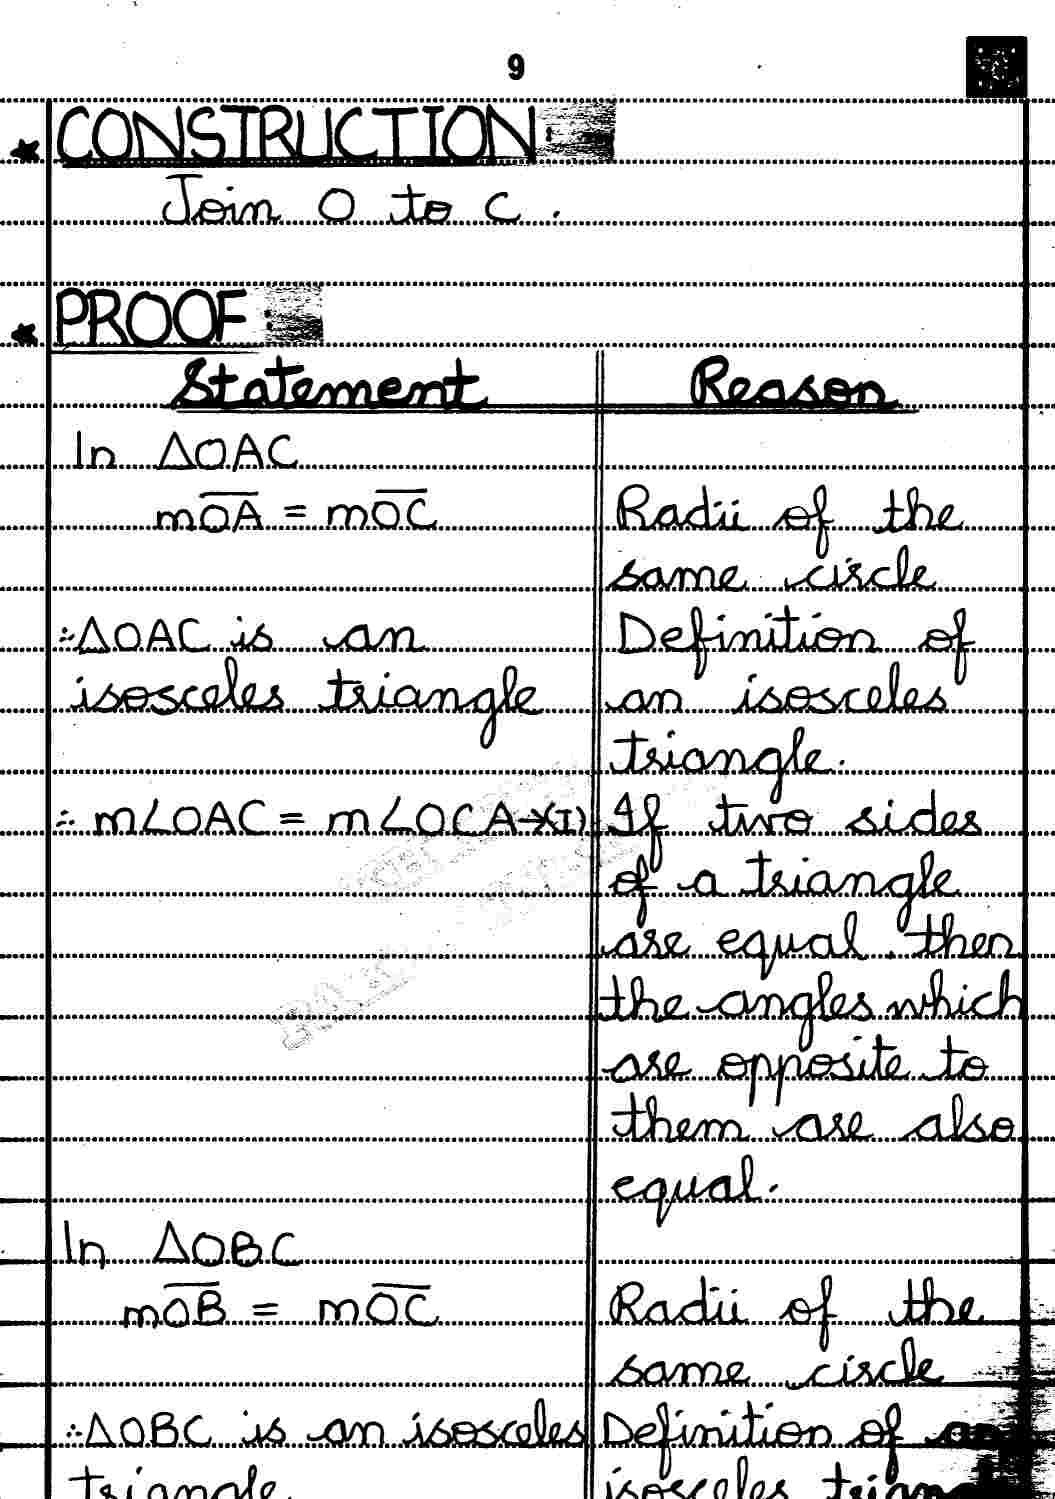 9
CONSTRUCTION:
Join O to C.
PROOF:
Statement Reason
In △OAC
mOA = mOC Radii of the
same circle
∴△OAC is an Definition of
isosceles triangle an isosceles
triangle.
∴ m∠OAC = m∠OCA→(I) If two sides
of a triangle
are equal, then
the angles which
are opposite to
them are also
equal.
In △OBC
mOB = mOC Radii of the
same circle
∴△OBC is an isosceles Definition of an
triangle isosceles